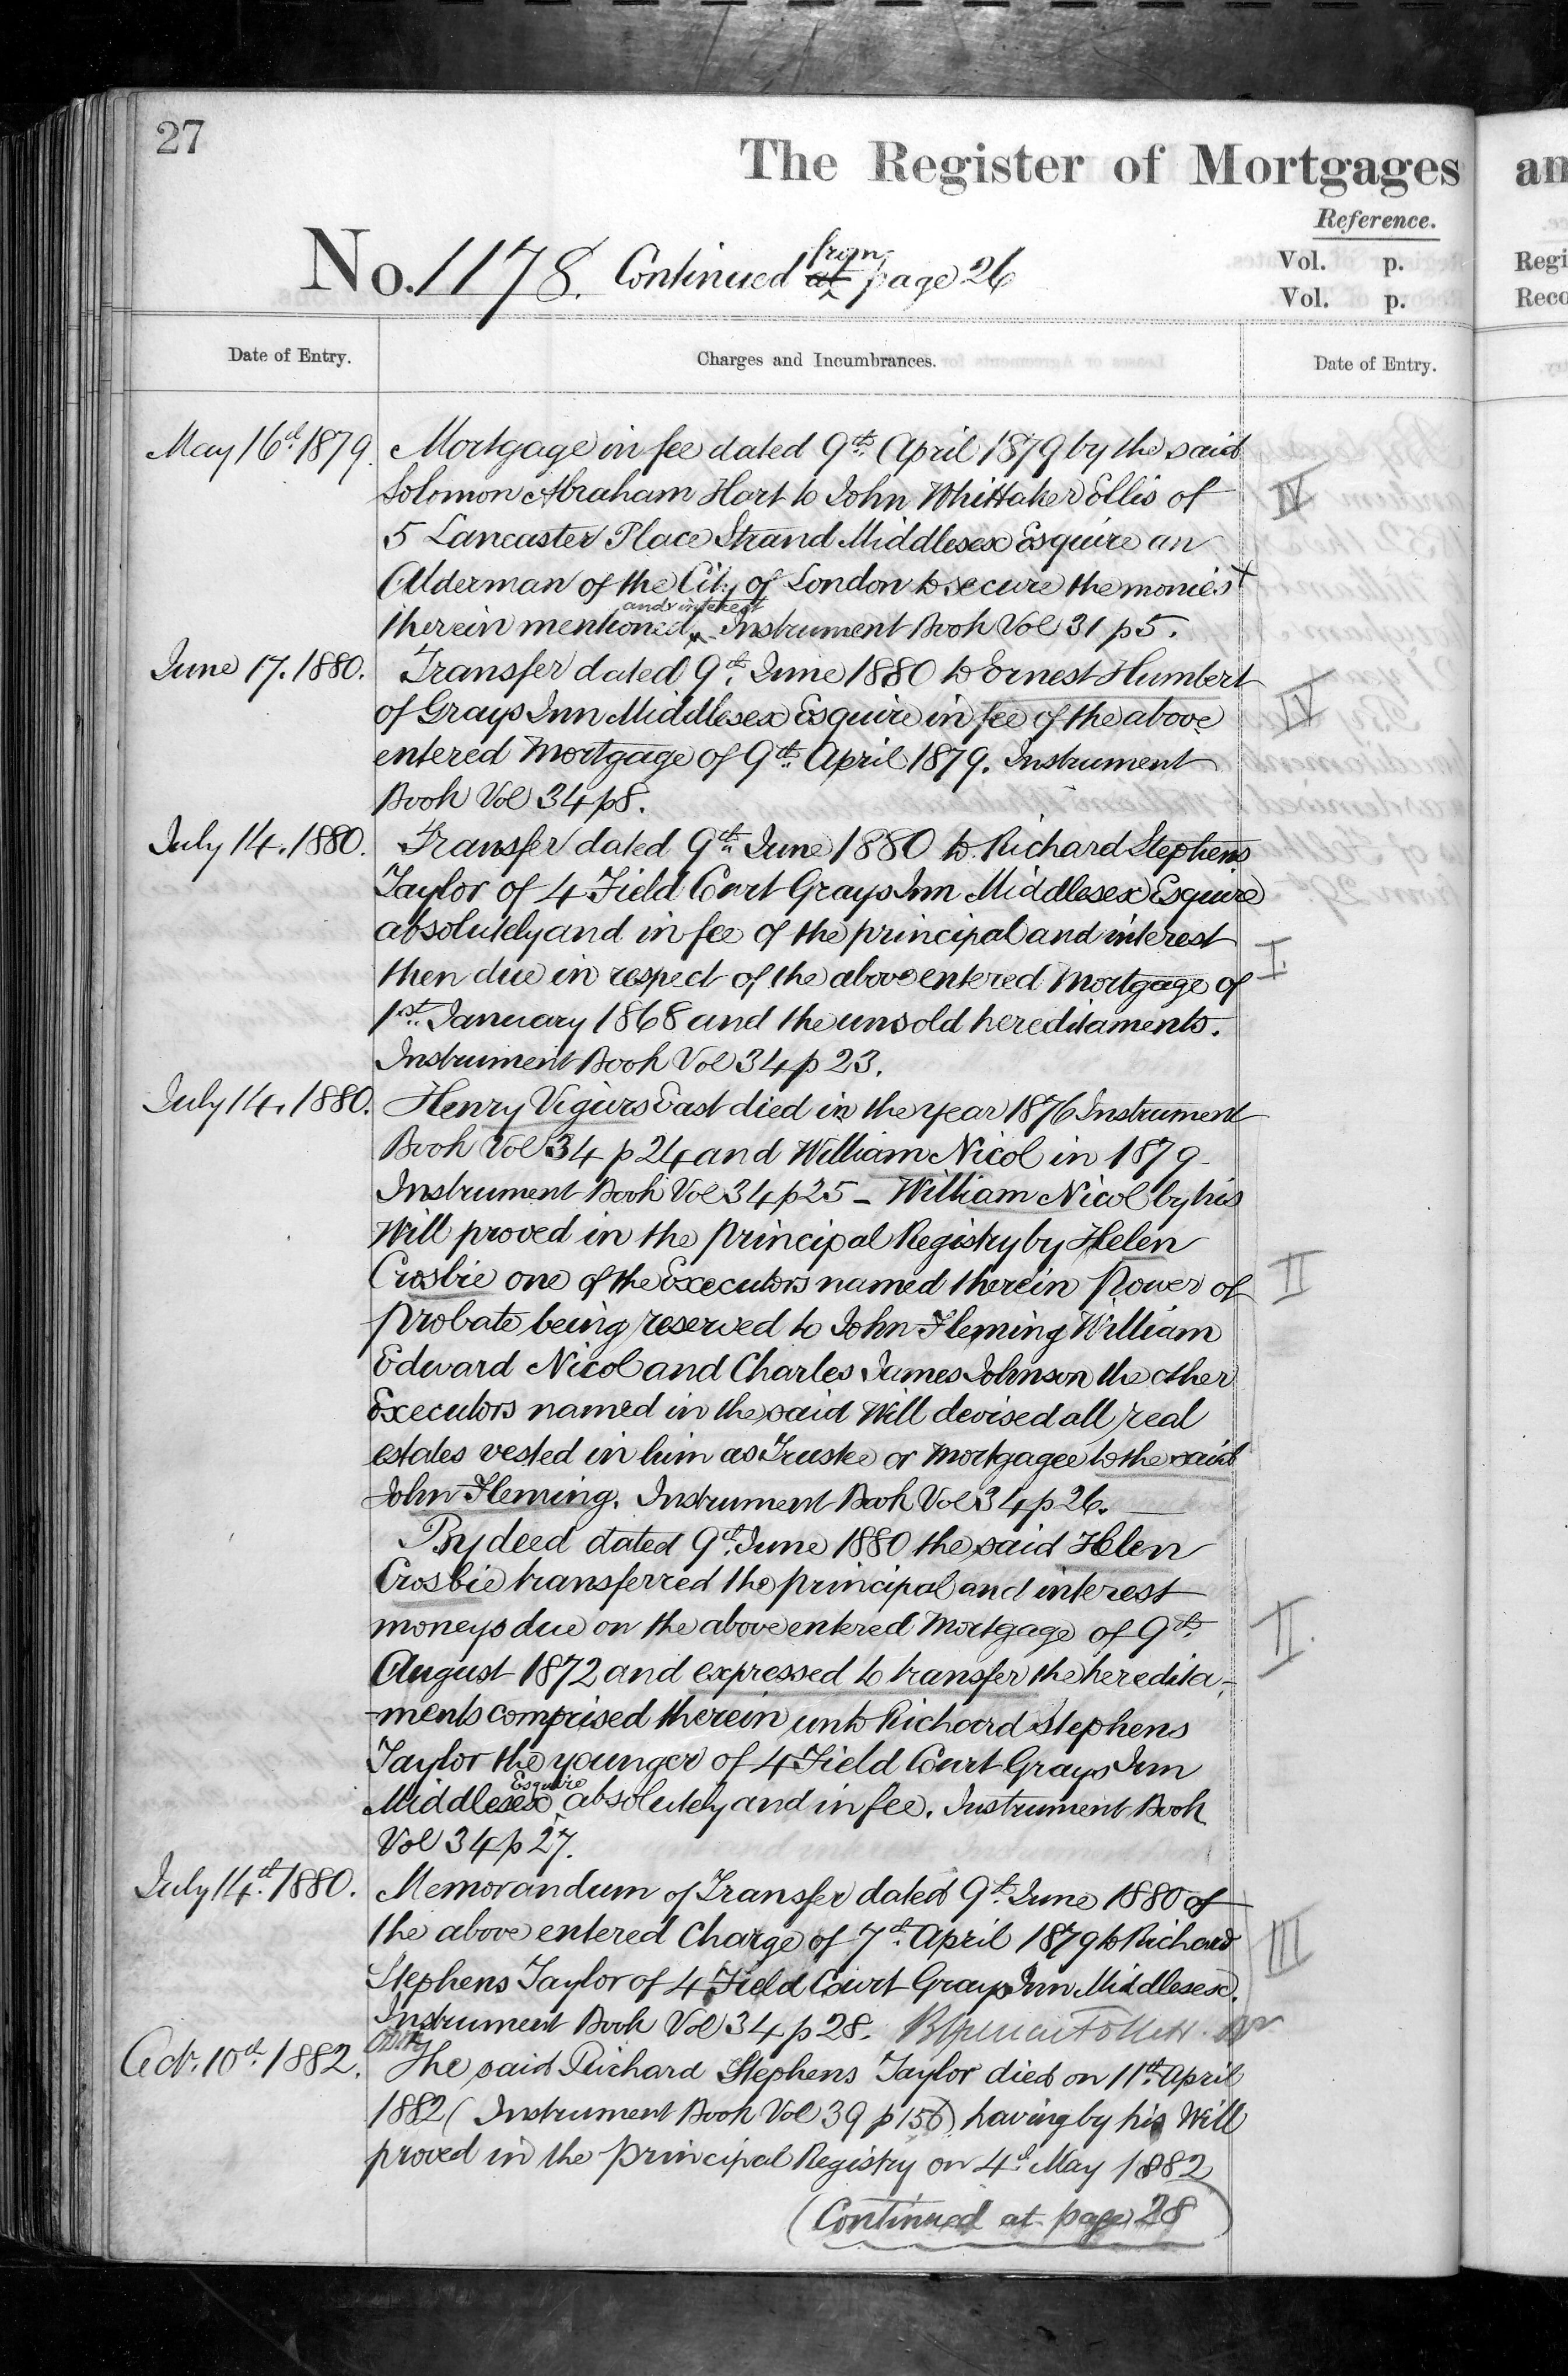 27
The Register of Mortgages an
Reference.
No. 1178. Continued at from page 26
Vol. p. Regi
Vol. p. Reco
Date of Entry. Charges and Incumbrances. Date of Entry.
May 16th 1879. Mortgage in fee dated 9th April 1879 by the said
Solomon Abraham Hart to John Whittaker Ellis of IV
5 Lancaster Place Strand Middlesex Esquire an
Alderman of the City of London to secure the monies x
and interest
therein mentioned Instrument Book Vol 31 p 5.
June 17. 1880. Transfer dated 9th June 1880 to Ernest Humbert
of Grays Inn Middlesex Esquire in fee of the above IV
entered Mortgage of 9th April 1879. Instrument
Book Vol 34 p 8.
July 14. 1880. Transfer dated 9th June 1880 to Richard Stephens
Taylor of 4 Field Court Grays Inn Middlesex Esquire
absolutely and in fee of the principal and interest I.
then due in respect of the above entered Mortgage of
1st January 1868 and the unsold hereditaments.
Instrument Book Vol 34 p 23.
July 14. 1880. Henry Vigurs East died in the year 1876 Instrument
Book Vol 34 p 24 and William Nicol in 1879
Instrument Book Vol 34 p 25 - William Nicol by his
Will proved in the principal Registry by Helen
Crosbie one of the Executors named therein power of II
probate being reserved to John Fleming William
Edward Nicol and Charles James Johnson the other
Executors named in the said Will devised all real
estates vested in him as Trustee or Mortgagee to the said
John Fleming. Instrument Book Vol 34 p 26.
By deed dated 9th June 1880 the said Helen
Crosbie transferred the principal and interest
moneys due on the above entered Mortgage of 9th II.
August 1872 and expressed to transfer the heredita-
-ments comprised therein unto Richard Stephens
Taylor the younger of 4 Field Court Grays Inn
Esquire
Middlesex absolutely and in fee. Instrument Book
Vol 34 p 27.
July 14th 1880. Memorandum of Transfer dated 9th June 1880 of
the above entered Charge of 7th April 1879 to Richard III
Stephens Taylor of 4 Field Court Grays Inn Middlesex.
Instrument Book Vol 34 p 28.
Oct. 10th 1882. The said Richard Stephens Taylor died on 11th April
1882 (Instrument Book Vol 39 p 156) having by his Will
proved in the principal Registry on 4th May 1882
(Continued at page 28)